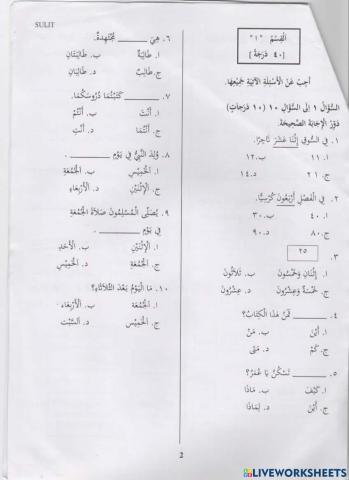 SULIT
القِسْمُ "١"
[ ٤٠ دَرَجَةً ]
أَجِبْ عَنْ الأَسْئِلَةِ الآتِيَةِ جَمِيْعِهَا.
السُّؤَالُ ١ إِلَى السُّؤَالِ ١٠ (١٠ دَرَجَات)
دَوِّرْ الإِجَابَةَ الصَّحِيْحَةَ.
١. فِي السُّوقِ إِثْنَا عَشَرَ تَاجِرًا.
ا. ١١ ب. ١٢
ج. ٢١ د. ١٤
٢. فِي الفَصْلِ أَرْبَعُونَ كُرْسِيًّا.
ا. ٤٠ ب. ٣٠
ج. ٨٠ د. ٩٠
٣. ٢٥
ا. إِثْنَانِ وَخَمْسُونَ ب. ثَلَاثُونَ
ج. خَمْسَةٌ وَعِشْرُونَ د. عِشْرُونَ
٤. ______ ثَمَنُ هَذَا الْكِتَابُ؟
ا. أَيْنَ ب. مَنْ
ج. كَمْ د. مَتَى
٥. ______ تَسْكُنُ يَا عُمَرُ؟
ا. كَيْفَ ب. مَاذَا
ج. أَيْنَ د. لِمَاذَا
٦. هِيَ ______ مُجْتَهِدَةٌ.
ا. طَالِبَةٌ ب. طَالِبَتَانِ
ج. طَالِبٌ د. طَالِبَانِ
٧. ______ كَتَبْتُمَا دُرُوسَكُمَا.
ا. أَنْتَ ب. أَنْتُمْ
ج. أَنْتُمَا د. أَنْتِ
٨. وُلِدَ النَّبِيُّ فِي يَوْمِ ______ .
ا. الْخَمِيْسِ ب. الْجُمُعَةِ
ج. الإِثْنَيْنِ د. الأَرْبَعَاءِ
٩. يُصَلِّى الْمُسْلِمُونَ صَلَاةَ الْجُمُعَةِ
فِي يَوْمِ ______ .
ا. الإِثْنَيْنِ ب. الأَحَدِ
ج. الْجُمُعَةِ د. الْخَمِيْسِ
١٠. مَا الْيَوْمُ بَعْدَ الثُّلَاثَاءِ؟
ا. الْجُمُعَة ب. الأَرْبِعَاء
ج. الْخَمِيس د. السَّبْت
2
LIVEWORKSHEETS